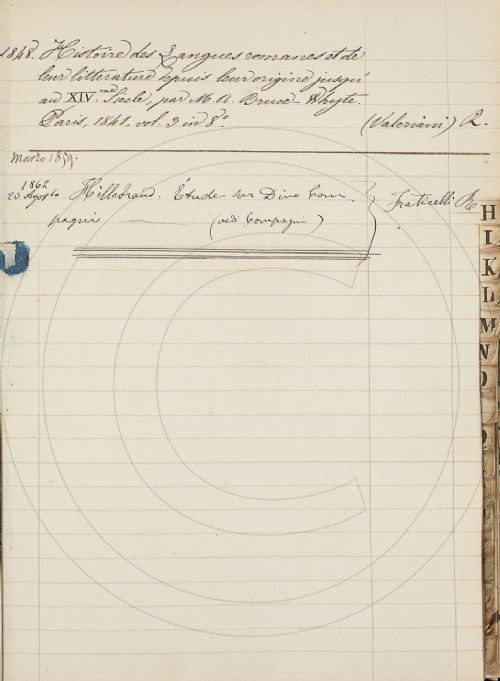 1848. Histoire des Langues romanes et de
leur litterature depuis leur origine jusqu'
au XIV.me Siècle, par M. A. Bruce-Whyte.
Paris, 1841. vol. 3 in 8.° (Valeriani) R.
Marzo 1859.
1862
20 Agosto Hillebrand. Étude sur Dino Com-
pagni (vedi Compagni) Fraticelli R
H
I
K
L
M
N
O